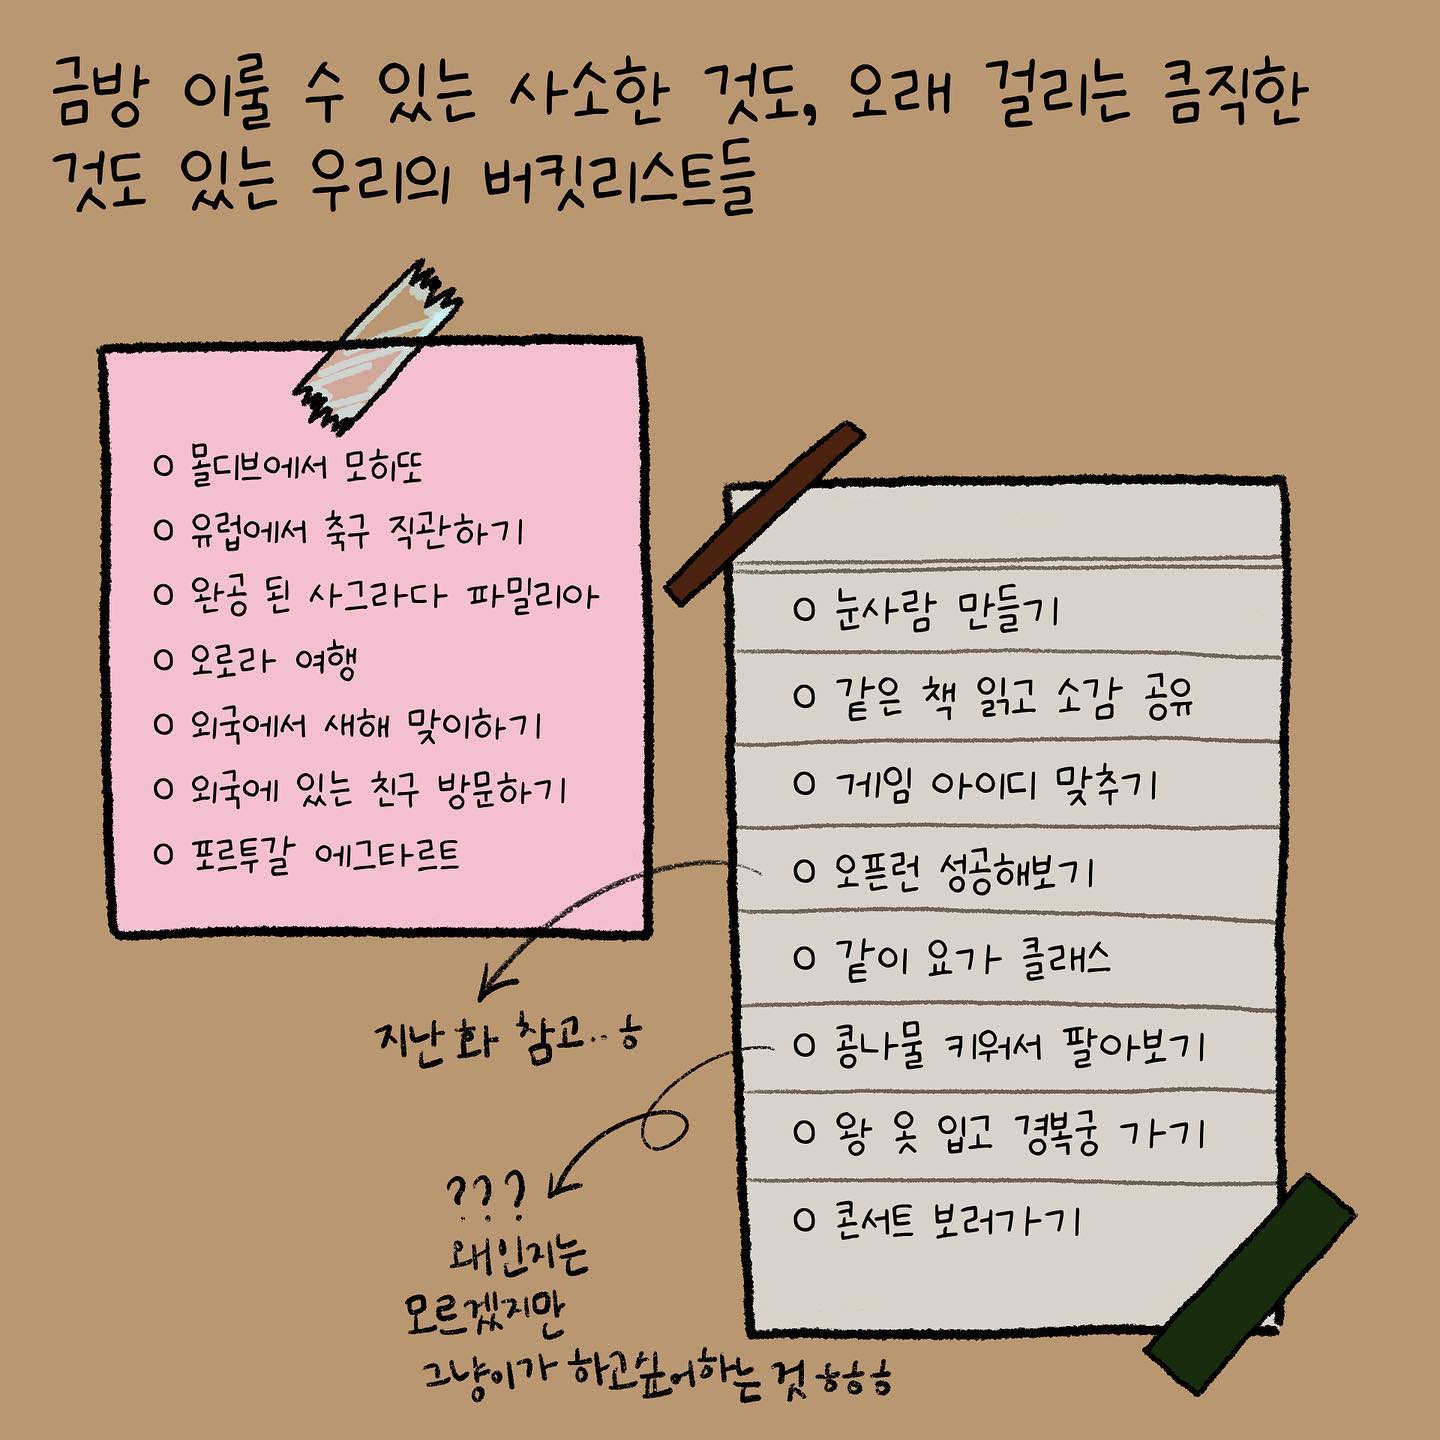 금방 이룰 수 있는 사소한 것도, 오래 걸리는 큼직한
것도 있는 우리의 버킷리스트들
○ 몰디브에서 모히또
○ 유럽에서 축구 직관하기
○ 완공 된 사그라다 파밀리아
○ 오로라 여행
○ 외국에서 새해 맞이하기
○ 외국에 있는 친구 방문하기
○ 포르투갈 에그타르트
○ 눈사람 만들기
○ 같은 책 읽고 소감 공유
○ 게임 아이디 맞추기
○ 오픈런 성공해보기
○ 같이 요가 클래스
○ 콩나물 키워서 팔아보기
○ 왕 옷 입고 경복궁 가기
○ 콘서트 보러가기
지난 화 참고..ㅎ
???
왜인지는
모르겠지만
그냥이가 하고싶어하는 것 ㅎㅎㅎ